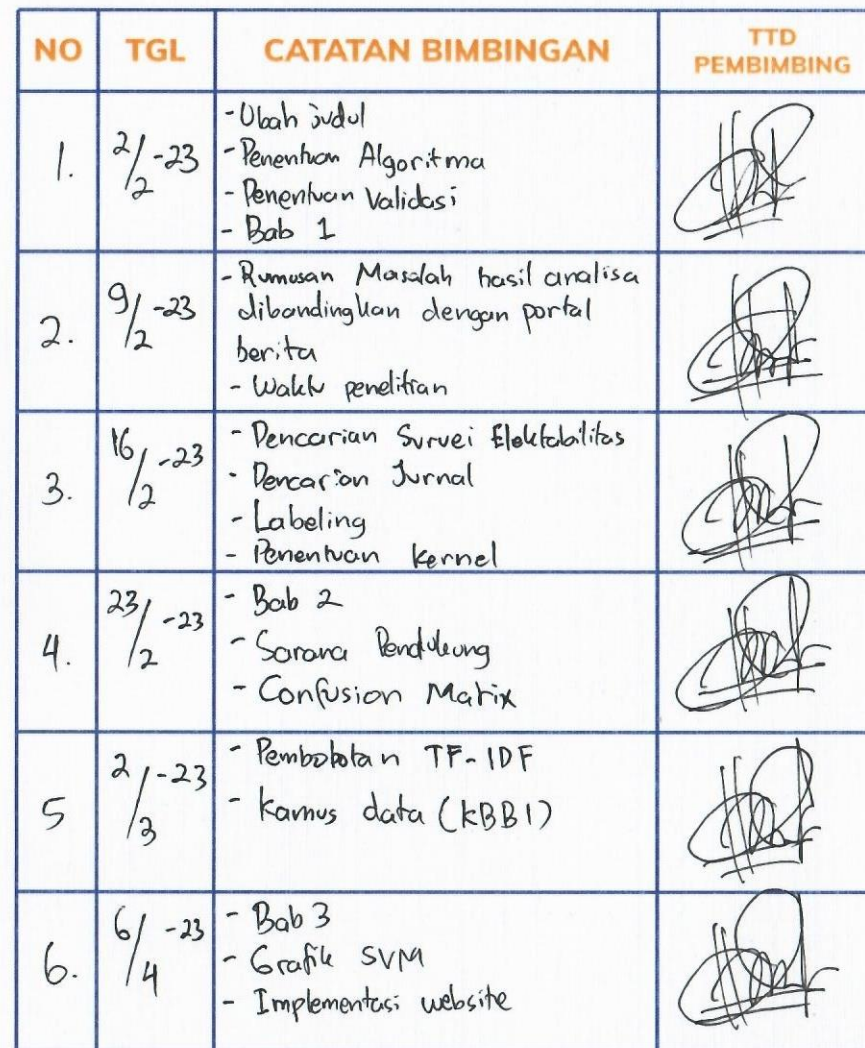 NO TGL CATATAN BIMBINGAN TTD PEMBIMBING
1. 2/2-23
- Ubah judul
- Penentuan Algoritma
- Penentuan Validasi
- Bab 1
2. 9/2-23
- Rumusan Masalah hasil analisa
dibandingkan dengan portal
berita
- Waktu penelitian
3. 16/2-23
- Pencarian Survei Elektabilitas
- Pencarian Jurnal
- Labeling
- Penentuan Kernel
4. 23/2-23
- Bab 2
- Sarana Pendukung
- Confusion Matrix
5 2/3-23
- Pembobotan TF-IDF
- Kamus data (KBBI)
6. 6/4-23
- Bab 3
- Grafik SVM
- Implementasi website